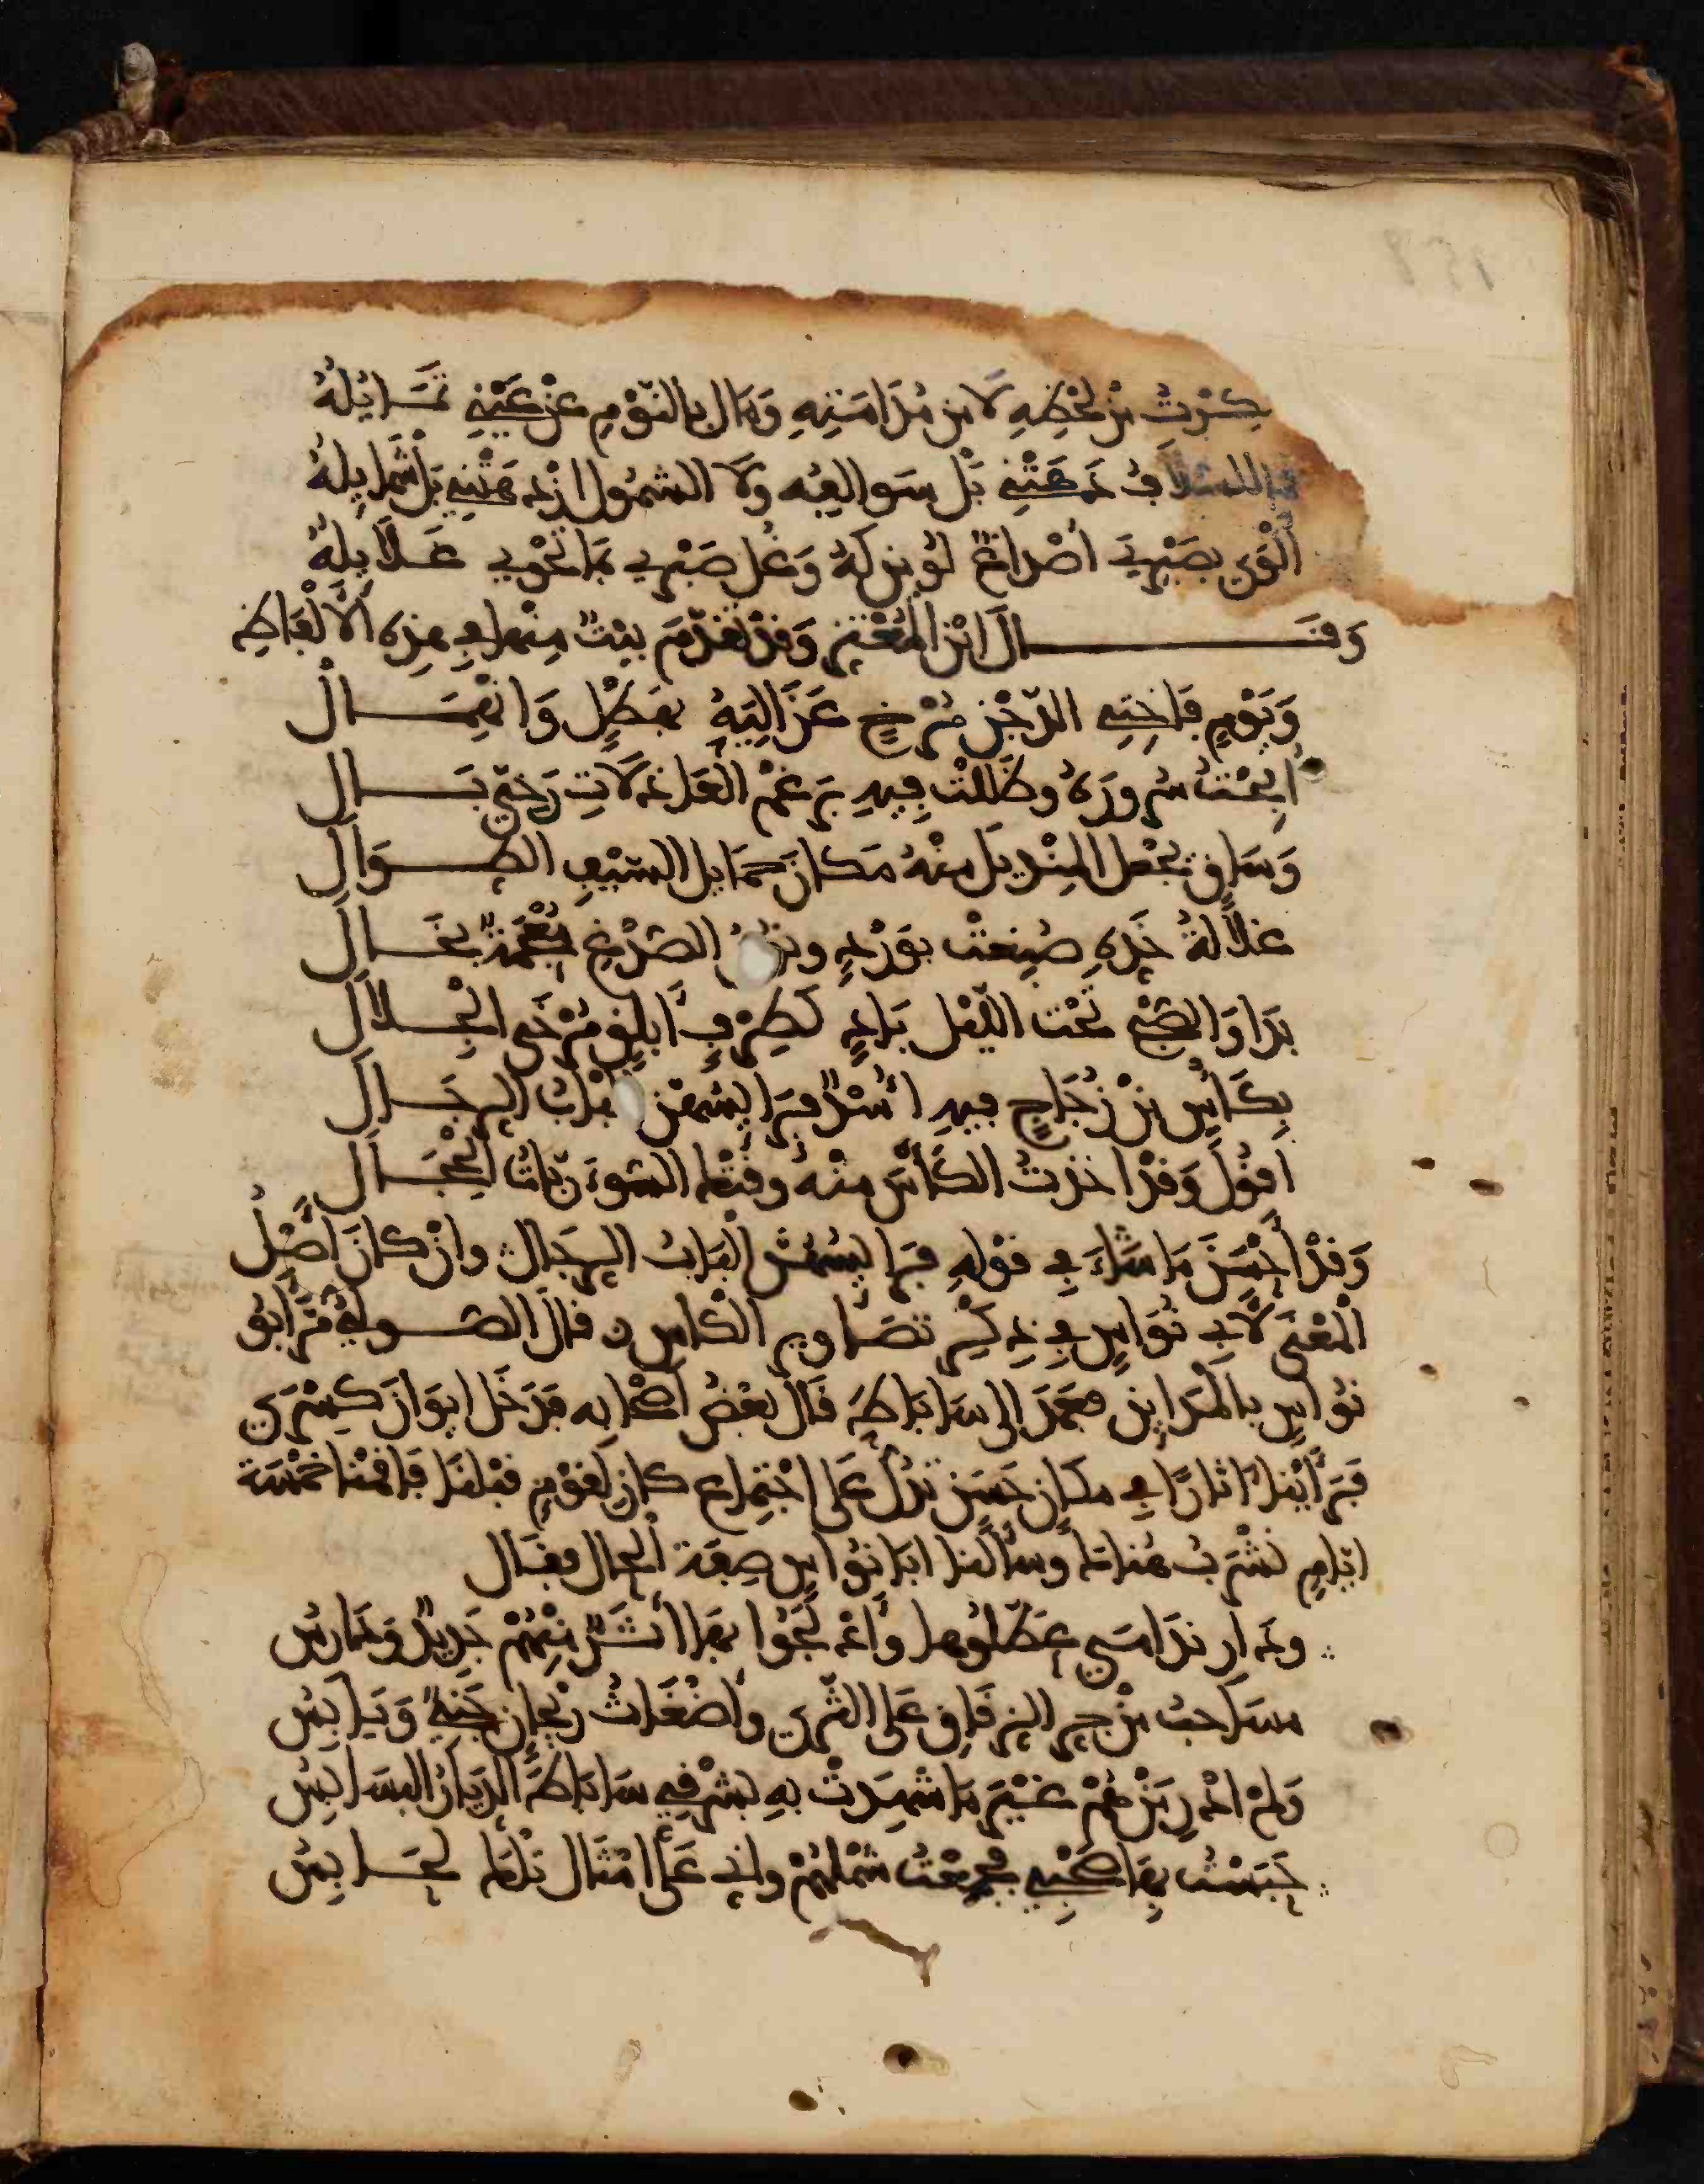 سَكِرْتُ مِنْ لَحْظِهِ لَا مِنْ مُدَامَتِهِ وَمَالَ بِالنَّوْمِ عَنْ عَيْنِي تَمَايُلُهُ
فما السلافُ دَهَتْنِي بَلْ سَوالِفُه ولَا الشمُولُ ازْدَهَتْنِي بَلْ شَمَايِلُهُ
أَلْوَى بِصَبْرِيَ أَصْداغٌ لُوِينَ لَهُ وَغُلَّ صَبْرِي بِمَا تَحْوِي غَلَايِلُهُ
وَقَــــالَ ابْنُ الْمُعْتَزِّ وَقَدْ تَقَدَّمَ بَيْتٌ مِنْها فِي هذِهِ الْأَلْفَاظِ
وَيَوْمٍ فَاخِتِيِّ الدَّجْنِ مُرْخٍ عَزَالِيَهُ بِهَطْلٍ وَانْهِمَــالْ
أَبَحْتُ سُرُورَهُ وظَلَلْتُ فِيهِ بِرَغْمِ الْعَاذِلَاتِ رَخِيَّ بَــالِ
وَسَاقٍ يَجْعَلُ الْمِنْدِيلَ مِنْهُ مَكَانَ حَمَايِلِ السَّيْفِ الطِّــوَالِ
غِلَالَةُ خَدِّهِ صُبِغَتْ بِوَرْدٍ ونُونُ الصُّدْغِ مُعْجَمَةٌ بِخَــالِ
بَدَا وَالصُّبْحُ تَحْتَ اللَّيْلِ بَادٍ كَطِرْفٍ أَبْلَقٍ مُرْخَى الْجِــلَالِ
بِكَأْسٍ مِنْ زُجَاجٍ فِيهِ أُسْدٌ فَرَايِسُهُنَّ أَلْبَابُ الرِّجَــالِ
أَقُولُ وَقَدْ أَخَذْتُ الْكَأْسَ مِنْهُ وقَتْكَ السُّوءَ رَبَّاتُ الْحِجَــالِ
وَقَدْ أَحْسَنَ مَا شَاءَ فِي قَوْلِهِ فَرَايِسُهُنَّ أَلْبَابُ الرِّجَالِ وَإِنْ كَانَ أَصْلُ
الْمَعْنَى لِأَبِي نُوَاسٍ فِي ذِكْرِ تَصَاوِيرِ الْكَأْسِ قَالَ الصُّــولِيُّ مَرَّ أَبُو
نُوَاسٍ بِالْمَدَايِنِ فَعَمَدَ إِلَى سَابَاطَ قَالَ بَعْضُ أَصْحَابِهِ فَدَخَلَ إِيوَانَ كِسْرَى
فَرَأَيْنَا آثَارًا فِي مَكَانٍ حَسَنٍ تَدُلُّ عَلَى اجْتِمَاعٍ كَانَ لِقَوْمٍ قَبْلَنَا فَأَقَمْنَا خَمْسَةَ
أَيَّامٍ نَشْرَبُ هُنَاكَ وَسَأَلْنَا أَبَا نُوَاسٍ صِفَةَ الْحَالِ فَقَالَ
ودَارِ نَدَامَى عَطَّلُوهَا وَأَدْلَجُوا بِهَا أَثَرٌ مِنْهُمْ جَدِيدٌ وَدَارِسُ
مَسَاحِبُ مِنْ جَرِّ الزِّقَاقِ عَلَى الثَّرَى وأَضْغَاثُ رَيْحَانٍ جَنِيٌّ وَيَابِسُ
وَلَمْ أَدْرِ مَنْ هُمْ غَيْرَ مَا شَهِدَتْ بِهِ بِشَرْقِيِّ سَابَاطَ الدِّيَارُ الْبَسَابِسُ
حَبَسْتُ بِهَا صَحْبِي فَجَمَّعْتُ شَمْلَهُمْ وإِنِّي عَلَى أَمْثَالِ تِلْكَ لَحَــابِسُ